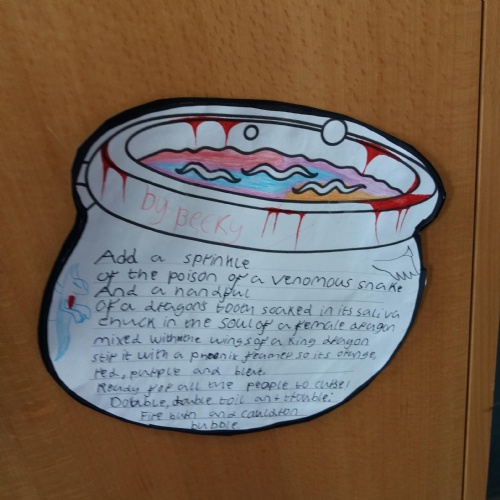 by Becky
Add a sprinkle
of the poison of a venomous snake
And a handful
of a dragons tooth soaked in its saliva
chuck in the soul of a female dragon
mixed with the wings of a king dragon
stir it with a phoenix feather so its orange,
red, purple and blue
Ready for all the people to curse!
Double, double toil and trouble:
Fire burn and cauldron
bubble